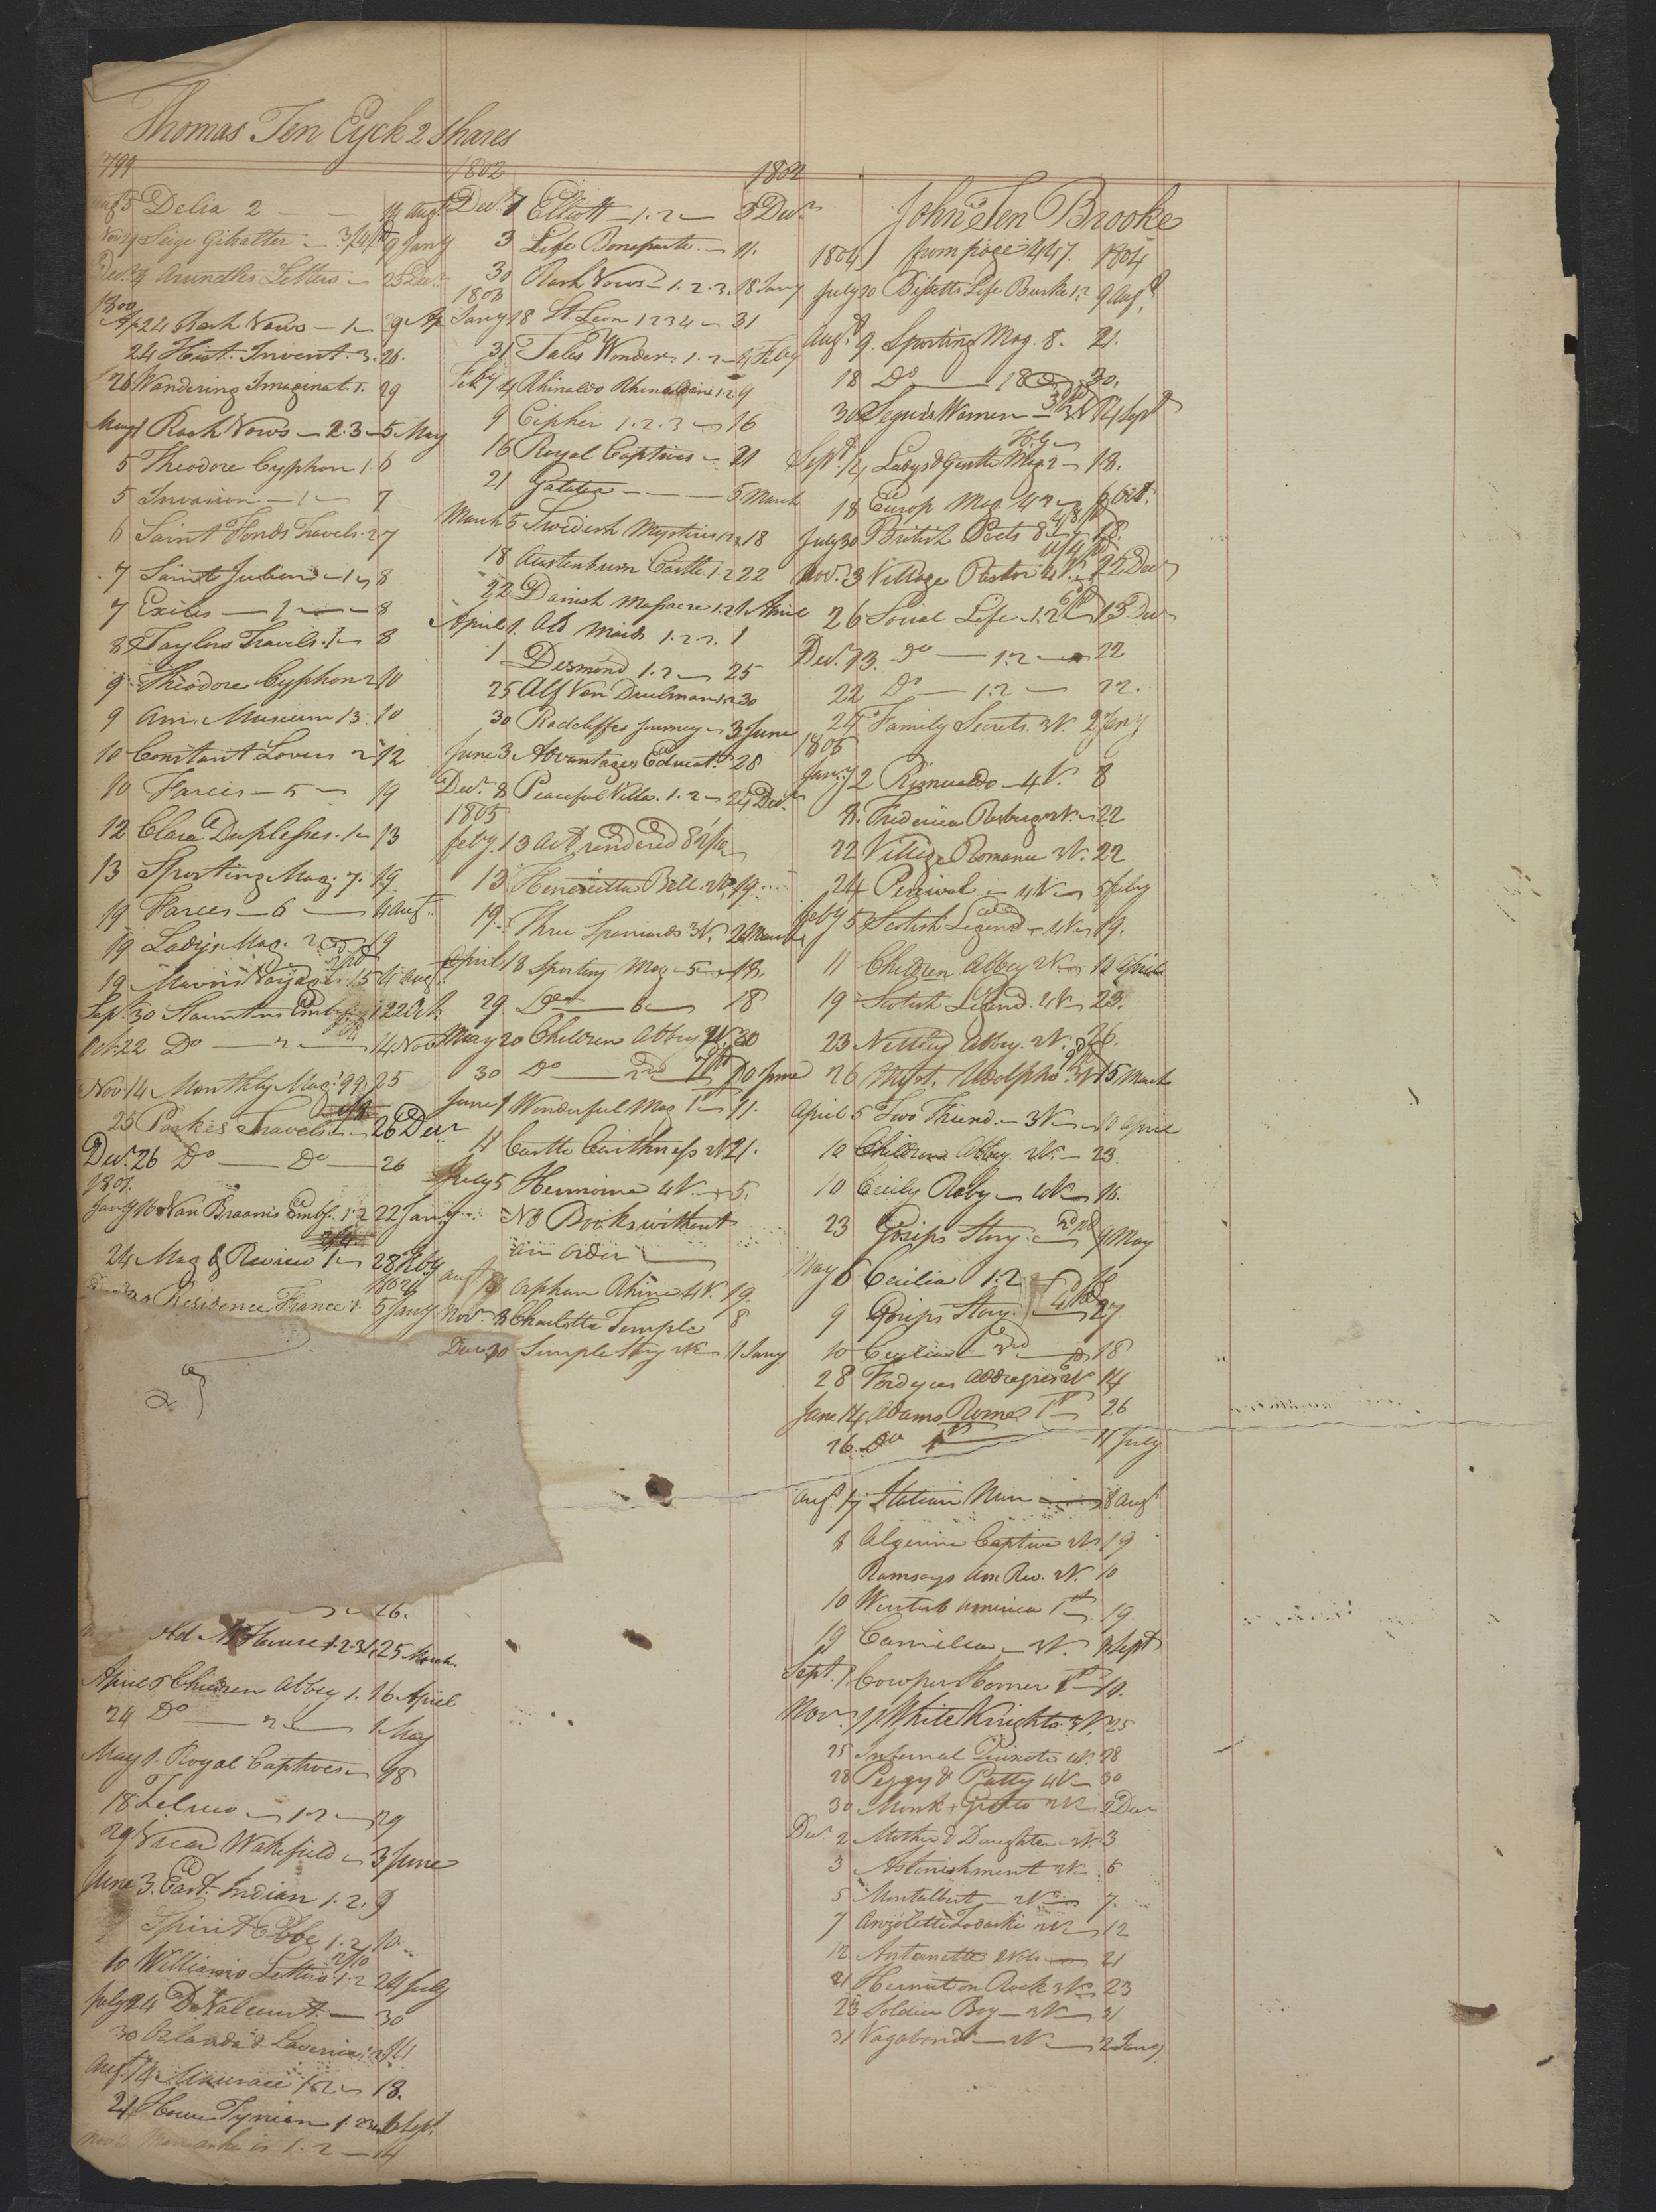 Thomas Ten Eyck 2 Shares
1799
Augt 5 Delia 2 — — 14 Augt
Nov 29 Seige Gibralter — 3/4/ 9 Jany
Decr 4 Arundles Letters — 25 Decr
1800
Ap 24 Rash Vows — 1 — 29 Ap
24 Hist. Invent. 3. 26.
26 Wandering Imaginat. 1. 29
May 1 Rash Vows — 2.3 — 5 May
5 Theodore Cyphon 1. 6
5 Invasion — 1 — 7
6 Saint Fonds Travels. 2 7
7 Saint Julien — 1 — 8
7 Exiles — 1 — — 8
8 Taylors Travels. 1 — 8
9 Theodore Cyphon 2 10
9 Am. Museum 13. 10
10 Constant Lover 2 12
10 Farces — 5 — 19
12 Clara Duplessis. 1 — 13
13 Sporting Mag. 7. 19
19 Farces — 6 — 4 Augt
19 Ladys Mag. 2 19
19 Mavors Voyages. 15 4 Augt
Sep. 30 Stauntons Emby 1 22 Oct
Oct. 22 Do — 2 — 14 Nov
Nov 14 Monthly Mag. 99. 25
25 Parkes Travels — 26 Decr
Decr. 26 Do — Do — 26
1801
Jany 16 Van Braams Emb. 1.2 22 Jany
24 Mag & Review 1 — 28 Feby
Residence France 1. 5 Jany
26.
Old M House 1.2.3.4 25 March
April 6 Children Abbey 1. 16 April
24 Do — 2 — 1 May
May 1. Royal Captives — 18
18 Zeluco — 1.2 — 29
29 Vicar Wakefield — 3 June
June 3. East Indian 1.2. 9
Spirit Elbe 1.2. 10
10 Williams Letters 1.2 24 July
July 24 D Valcourt — 30
30 Orlando & Lavinia 1.2 14
Augt 14 1.2 — 18.
21 House Tynian 1.2.3.4 6 Sept
1.2 — 14
1802 1802
Decr. 1 Elliott — 1.2 — 3 Decr
3 Life Boneparte — 11.
30 Rash Vows — 1.2.3. 18 Jany
1803
Jany 18 St. Leon 1234 — 31
31 Tales Wonder. 1.2 — 4 Feby
Feby 4 Rhinaldo Rhinaldini 1.2 9
9 Cipher 1.2.3 — 16
16 Royal Captives — 21
21 Galatea — — — 5 March
March 5 Swedish Mysteries 1.2.3 18
18 Austenburn Castle. 1.2 22
22 Danish Massacre 1.2 1 April
April 1. Old Maids 1.2.3. 1
1 Desmond 1.2 — 25
25 Alf Von Duelman 1.2 30
30 Radcliffes Journey — 3 June
June 3 Advantages Educat. 28
Decr. 8 Peaceful Villa. 1.2 — 24 Decr
1805
Feby. 13 Act rendered
13 Henrietta Bell. 2V. 19
19. Three Spaniards 3V. 2 March
April 18 Sporting Mag — 5 — 18.
29. Do — 6 — 18
May 20 Children Abbey 2V. 30
30 Do — 2nd 10 June
June 1 Wonderful Mag 1st 11.
11 Castle Caithness 2V. 21.
July 5 Hermione 4V. — 5.
No Books without
an order —
Augt Orphan Rhine 4V. 19.
Novr. 8 Charlotte Temple 8
Decr 30 Simple Story 2V 11 Jany
John Ten Brooke
1804 from page 447. 1804
July 20 Bissetts Life Burke 1.2 9 Augt
Augt. 9. Sporting Mag. 8. 21.
18 Do — 18 — 30.
30 Segurs Women — 3V 4 Sept
Sept. 4 Ladys & Gentle Mag 2 — 18.
18 Europ Mag. 42 — 6 Oct.
July 30 British Poets 8 — 18.
Nov. 3 Village Pastor 4V. — 22 Decr
26 Social Life — 1.2 — 13 Decr
Decr. 13. Do — 1.2 — 22
22 Do — 1.2 — 22.
24 Family Secrets. 3V. 2 Jany
1805
Jany 2 Rignualdo — 4V. 8
8. Frederica Risburg 2V. — 22
22 Village Romance 2V. 22
24 Percival — 4V — 5 Feby
Feby 5 Scotish Legend — 4V — 19.
11 Children Abbey 2V — 10 April
19 Scotish Legend. 4V — 23.
23 Nettley Abbey. 2V. — 26.
26 Myst. Udolpho 3V 15 March
April 5 Two Friend. — 3V — 10 April
10 Children Abbey. 2V. — 23.
10 Cecily Raby — 4V — 16.
23 Gosips Story — 2nd 9 May
May 6 Cecilia 1.2
9 Gosips Story. — 27
10 Cecilia — 3rd — 18
28 Fordyces addresses 2V 14
June 14 Adams Rome 1st 26
26. Do 1st — 11 July
Augt. 17 Italian Nun — 8 Augt
8 Algerine Captive 2V. 19
Ramsays Am. Rev. 2V. 10
10 Winterb america 1st — 19
19 Camilla — 3V. Sept
Sept. 1 Cowper Homer 1st — 19.
Nov. 11 White Knights 3V. 25
25 Infernal Quixote 4V. 28
28 Peggy & Patty 4V — 30
30 Monk & Grotto 2V — 2 Decr
Decr. 2 Mother & Daughter — 3V. 3
3 Astonishment 2V 5
5 Montalbert — 2V — 7
7 Anzoletta Zadoski 2V. — 12
12 Antoinette 2Vols — 21
21 Hermit on Rock 3V — 23
23 Soldier Boy — 3V — 31
31 Vagabond — 2V — 2 Jany